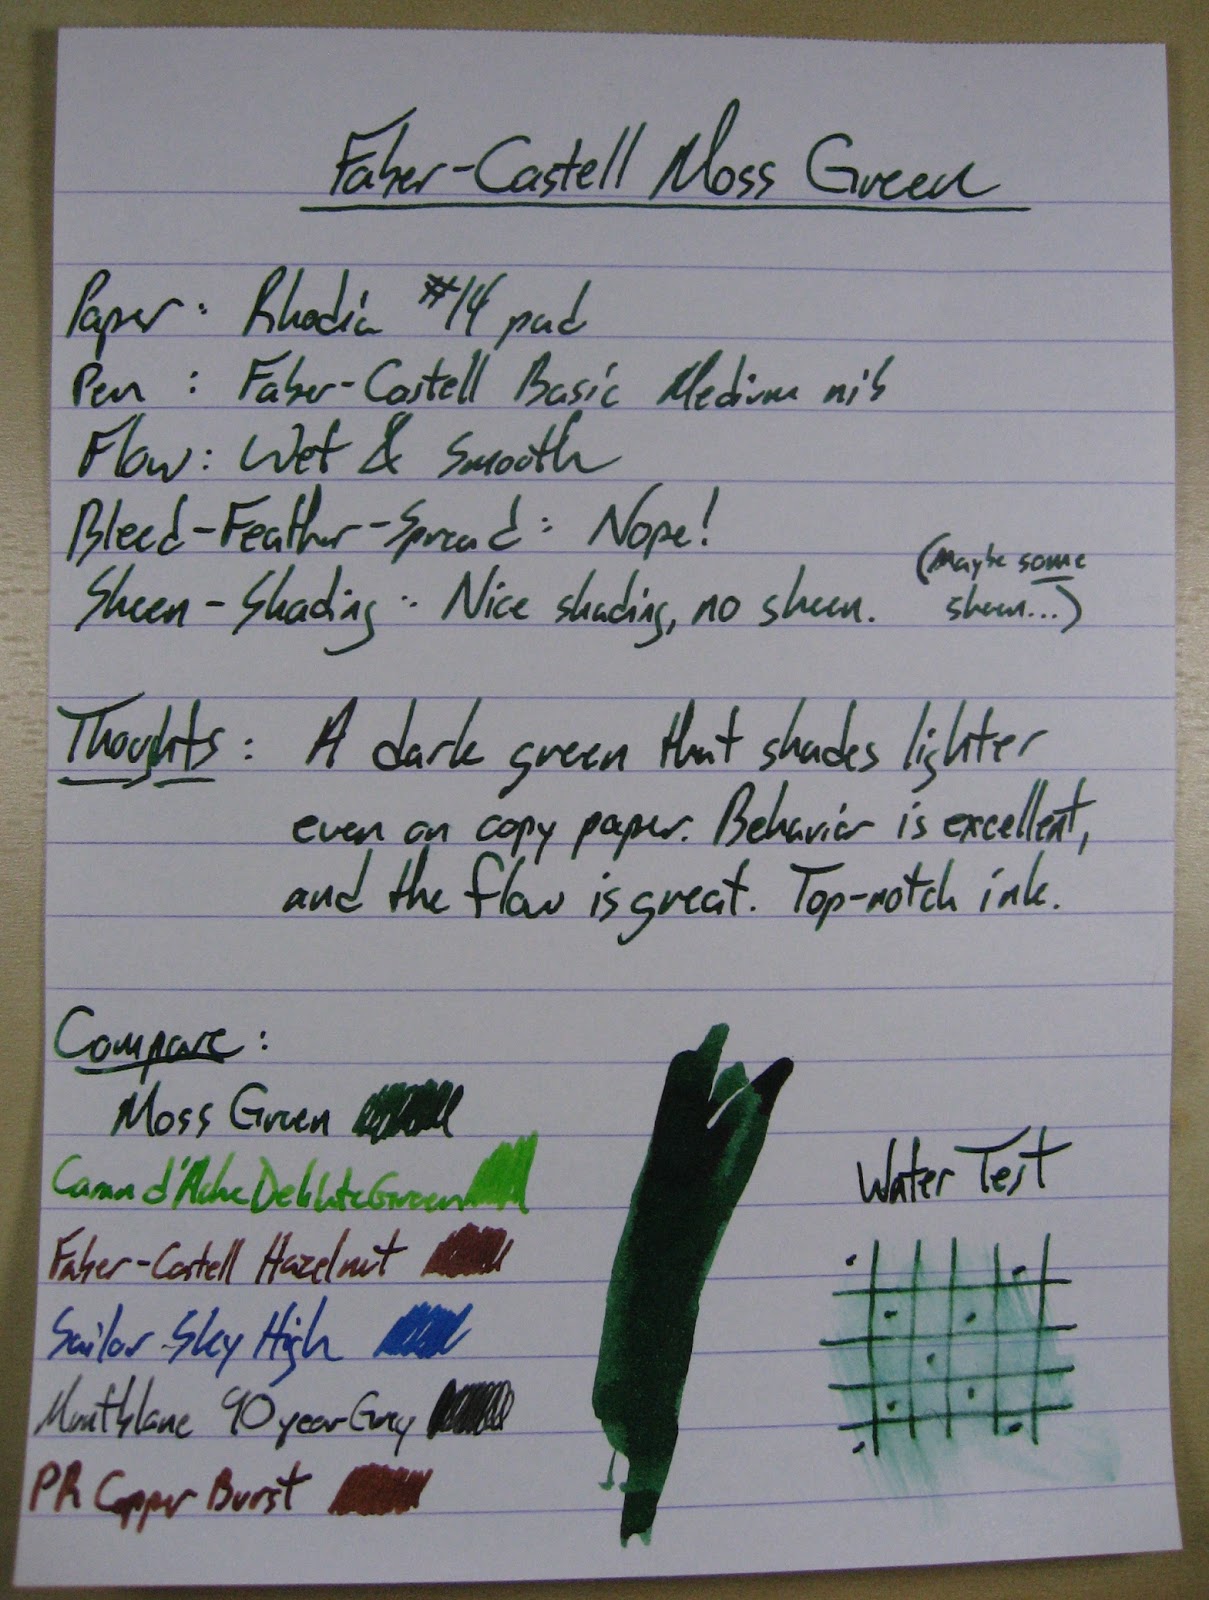 Faber-Castell Moss Green
Paper: Rhodia #14 pad
Pen : Faber-Castell Basic Medium nib
Flow: Wet & Smooth
Bleed-Feather-Spread: Nope!
Sheen-Shading: Nice shading, no sheen. (Maybe some
sheen...)
Thoughts: A dark green that shades lighter
even on copy paper. Behavior is excellent,
and the flow is great. Top-notch ink.
Compare:
Moss Green
Caran d'Ache Delicate Green
Faber-Castell Hazelnut
Sailor Sky High
Montblanc 90 year Grey
PR Copper Burst
Water Test